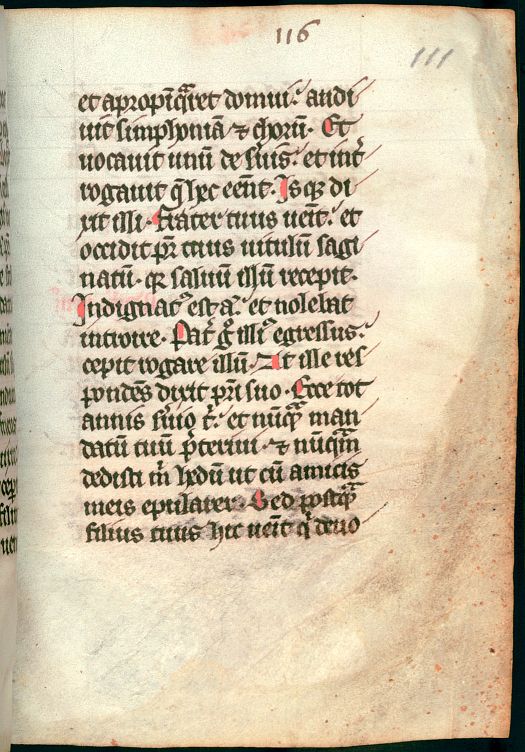 116
111
et aprop̄iq̄ret domui: audi
uit simphoniā ⁊ chorū. Et
uocauit unū de suis: et int̄
rogauit q̄ hec eēnt. Isq; di
xit illi. Frater tuus ueīt: et
occidit pr̄ tuus uitulū sagi
natū. qꝛ saluū illū recepit.
Indignatꝰ est aͣ. et nolebat
introire. Pat̄ g̊ illiꝰ egressus:
cepit rogare illū. At ille res
pondēs dixit pr̄i suo. Ecce tot
annis s̄uio t̄. et nūqͣ man
datū tuū p̄teriui. ⁊ nūqͣm
dedisti m̄ hedū ut cū amicis
meis epularer. Sed postqͣ
filius tuus hic ueīt q̄ deuo